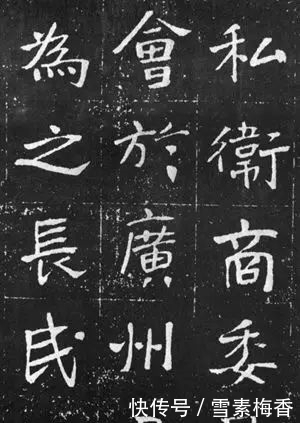 私衛商委
會於廣州
為之長民
快传号/雪素梅香